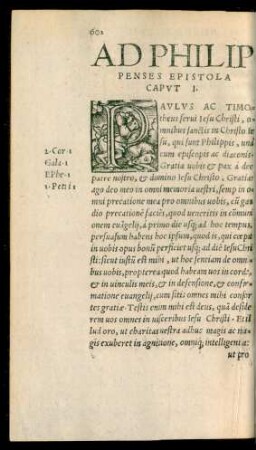 602
AD PHILIP
PENSES EPISTOLA
CAPVT I.
PAVLVS AC TIMO
theus serui Iesu Christi, o,
mnibus sanctis in Christo Ie
su, qui sunt Philippis, unà
cum episcopis ac diaconis.
Gratia uobis & pax à deo
patre nostro, & domino Iesu Christo. Gratias
ago deo meo in omni memoria uestri, semper in o,
mni precatione mea pro omnibus uobis, cũ gau
dio precationẽ faciẽs, quod ueneritis in cõmuni
onem euãgelij, à primo die usq; ad hoc tempus,
persuasum habens hoc ipsum, quod is, qui cœpit
in uobis opus bonũ perficiet usq; ad diẽ IesuChri
sti: sicut iustũ est mihi, ut hoc sentiam de omni
bus uobis, propterea quod habeam uos in corde,
& in uinculis meis, & in defensione, & confir
matione euangelij, cum sitis omnes mihi consor
tes gratiæ. Testis enim mihi est deus, quã deside
rem uos omnes in uisceribus Iesu Christi. Et il
lud oro, ut charitas uestra adhuc magis ac ma
gis exuberet in agnitione, omniq; intelligentia:
ut pro
2.Cor.1
Gala.1
Ephe.1
1.Petri 1